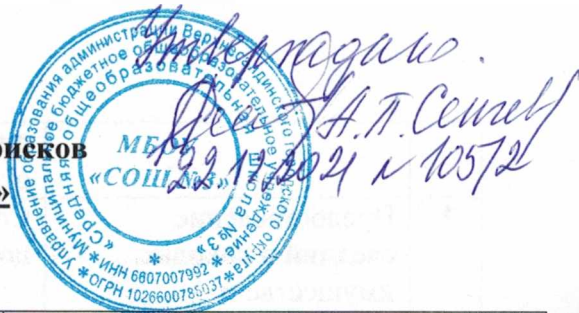 Утверждаю.
А.П. Сенчев
22.11.2021 № 105/2
рисков
»
Управление образования администрации Верхнесалдинского городского округа
* Муниципальное бюджетное общеобразовательное учреждение
«Средняя общеобразовательная школа № 3»
* ИНН 6607007992 *
* ОГРН 1026600785037 *
МБОУ
«СОШ №3»